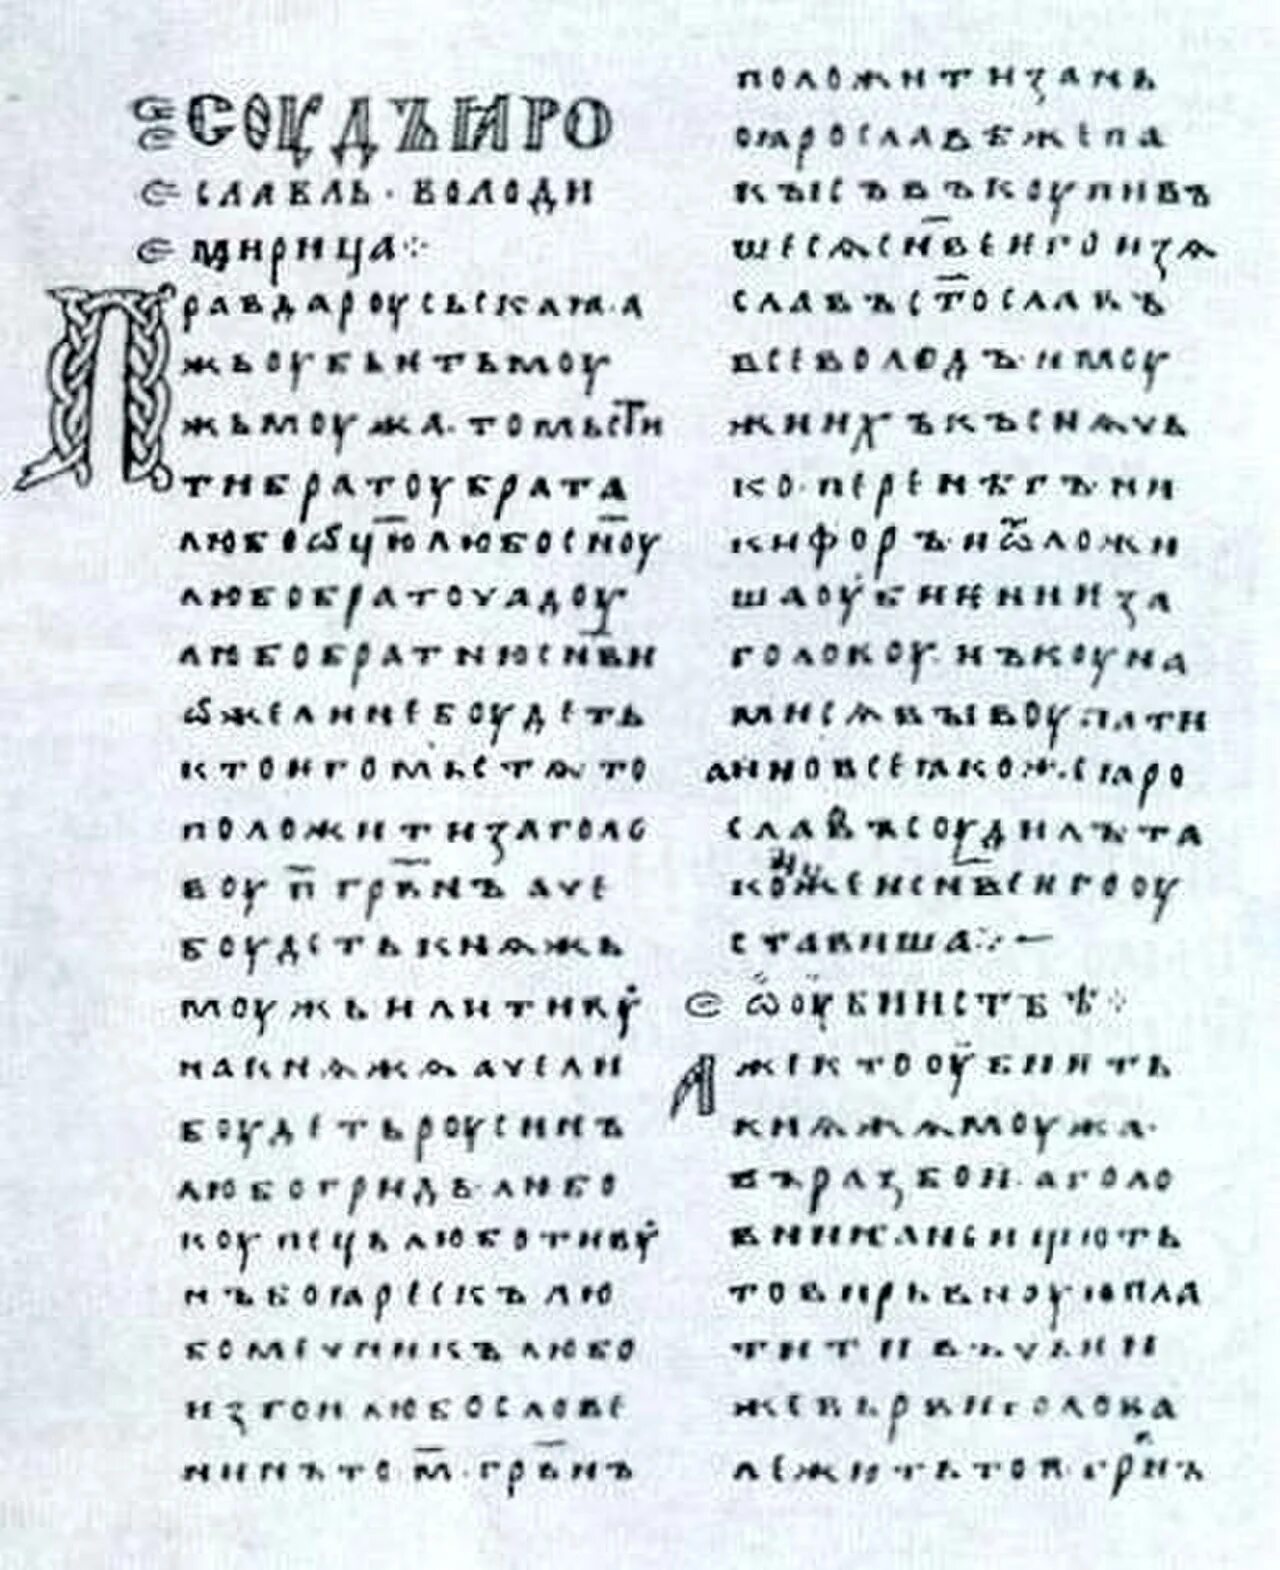 СОУДЪ ꙖРО
СЛАВЛЬ · ВОЛОДИ
МИРИЦА⁘
ПРАВДА РОУСЬСКАꙖ · А
ЖЬ ОУБЬИТЬ МОУ
ЖЬ МОУЖА · ТО МЬСТИ
ТИ БРАТОУ БРАТА
ЛЮБО ѾЦЮ҃ ЛЮБО СН҃ОУ
ЛЮБО БРАТОУЧАДОУ
ЛЮБО БРАТНЮ СН҃ВИ
ѠЖЕ ЛИ НЕ БОУДЕТЬ
КТО ИГО МЬСТѦ ТО
ПОЛОЖИТИ ЗА ГОЛО
ВОУ П҃ ГРВ҃НЪ АЧЕ
БОУДЕТЬ КНѦЖЬ
МОУЖЬ ИЛИ ТИВУ
НА КНѦЖѦ АЧЕ ЛИ
БОУДЕТЬ РОУСИНЪ
ЛЮБО ГРИДЬ · ЛЮБО
КОУПЕЦЬ ЛЮБО ТИВУ
НЪ БОꙖРЕСКЪ ЛЮ
БО МЕЧНИКЪ ЛЮБО
ИЗГОИ ЛЮБО СЛОВЕ
НИНЪ ТО М҃ · ГРВ҃НЪ
ПОЛОЖИТИ ЗА НЬ
ѠꙖРОСЛАВѢ ЖЕ ПА
КЫ СЪВЪКОУПИВЪ
ШЕСѦ СН҃ВЕ ИГО ИЗѦ
СЛАВЪ СТ҃ОСЛАВЪ
ВСЕВОЛОДЪ · И МОУ
ЖИ ИХЪ КЪСНѦЧЬ
КО · ПЕРЕНѢГЪ · НИ
КИФОРЪ · И ѾЛОЖИ
ША ОУБИЕНИИ ЗА
ГОЛОВОУ · НЪ КОУНА
МИ СѦ ВЫКОУПАТИ
А ИНО ВСЕ ꙖКОЖЕ ꙖРО
СЛАВЪ СОУДИЛЪ ТА
КОЖЕ И СН҃ВЕ ИГО ОУ
СТАВИША⁘—
Ѡ ОУБИИСТВѢ⁘
АЖЕ КТО ОУБИИТЬ
КНѦЖѦ МОУЖА ·
ВЪ РАЗБОИ · А ГОЛО
ВНИКА НЕ ИЩЮТЬ
ТО ВИРЬВНОУЮ ПЛА
ТИТИ ВЪ ЧЬИИ
ЖЕ ВЬРВИ ГОЛОВА
ЛЕЖИТЬ ТО П҃ · ГРН҃Ъ